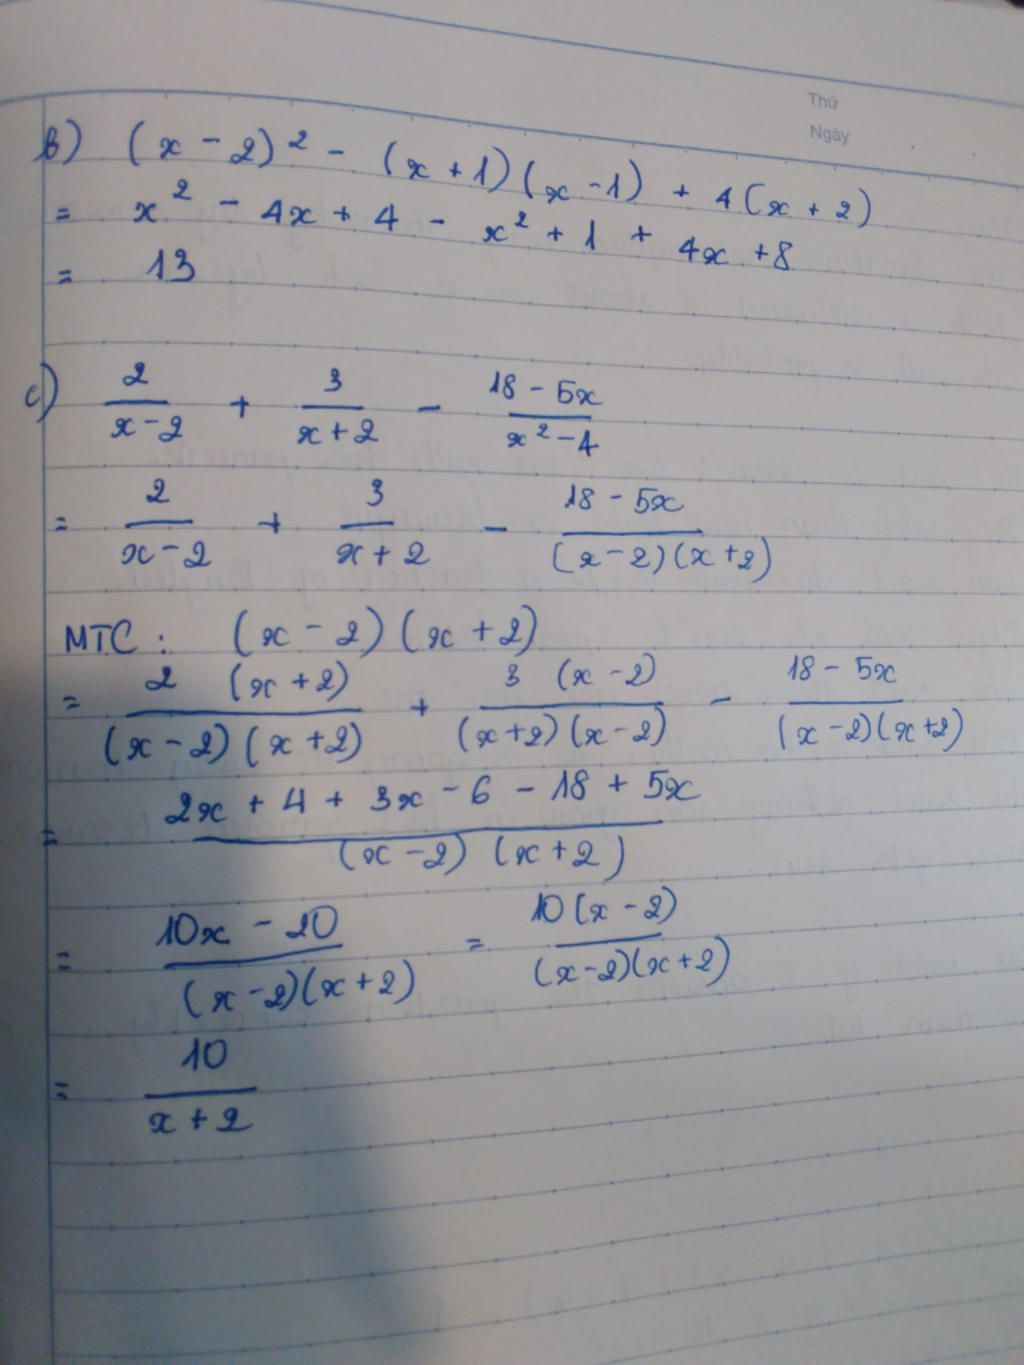 Thứ
Ngày
b) (x - 2)² - (x + 1)(x - 1) + 4(x + 2)
= x² - 4x + 4 - x² + 1 + 4x + 8
= 13
c) 2/(x - 2) + 3/(x + 2) - (18 - 5x)/(x² - 4)
= 2/(x - 2) + 3/(x + 2) - (18 - 5x)/((x - 2)(x + 2))
MTC : (x - 2)(x + 2)
= 2(x + 2)/((x - 2)(x + 2)) + 3(x - 2)/((x + 2)(x - 2)) - (18 - 5x)/((x - 2)(x + 2))
= (2x + 4 + 3x - 6 - 18 + 5x)/((x - 2)(x + 2))
= (10x - 20)/((x - 2)(x + 2)) = 10(x - 2)/((x - 2)(x + 2))
= 10/(x + 2)